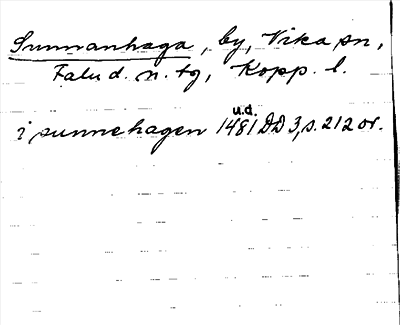 Sunnanhaga, by, Vika sn,
Falu d. n. tg, Kopp. l.
u.d.
i sunnehagen 1481 DD 3, s. 212 or.